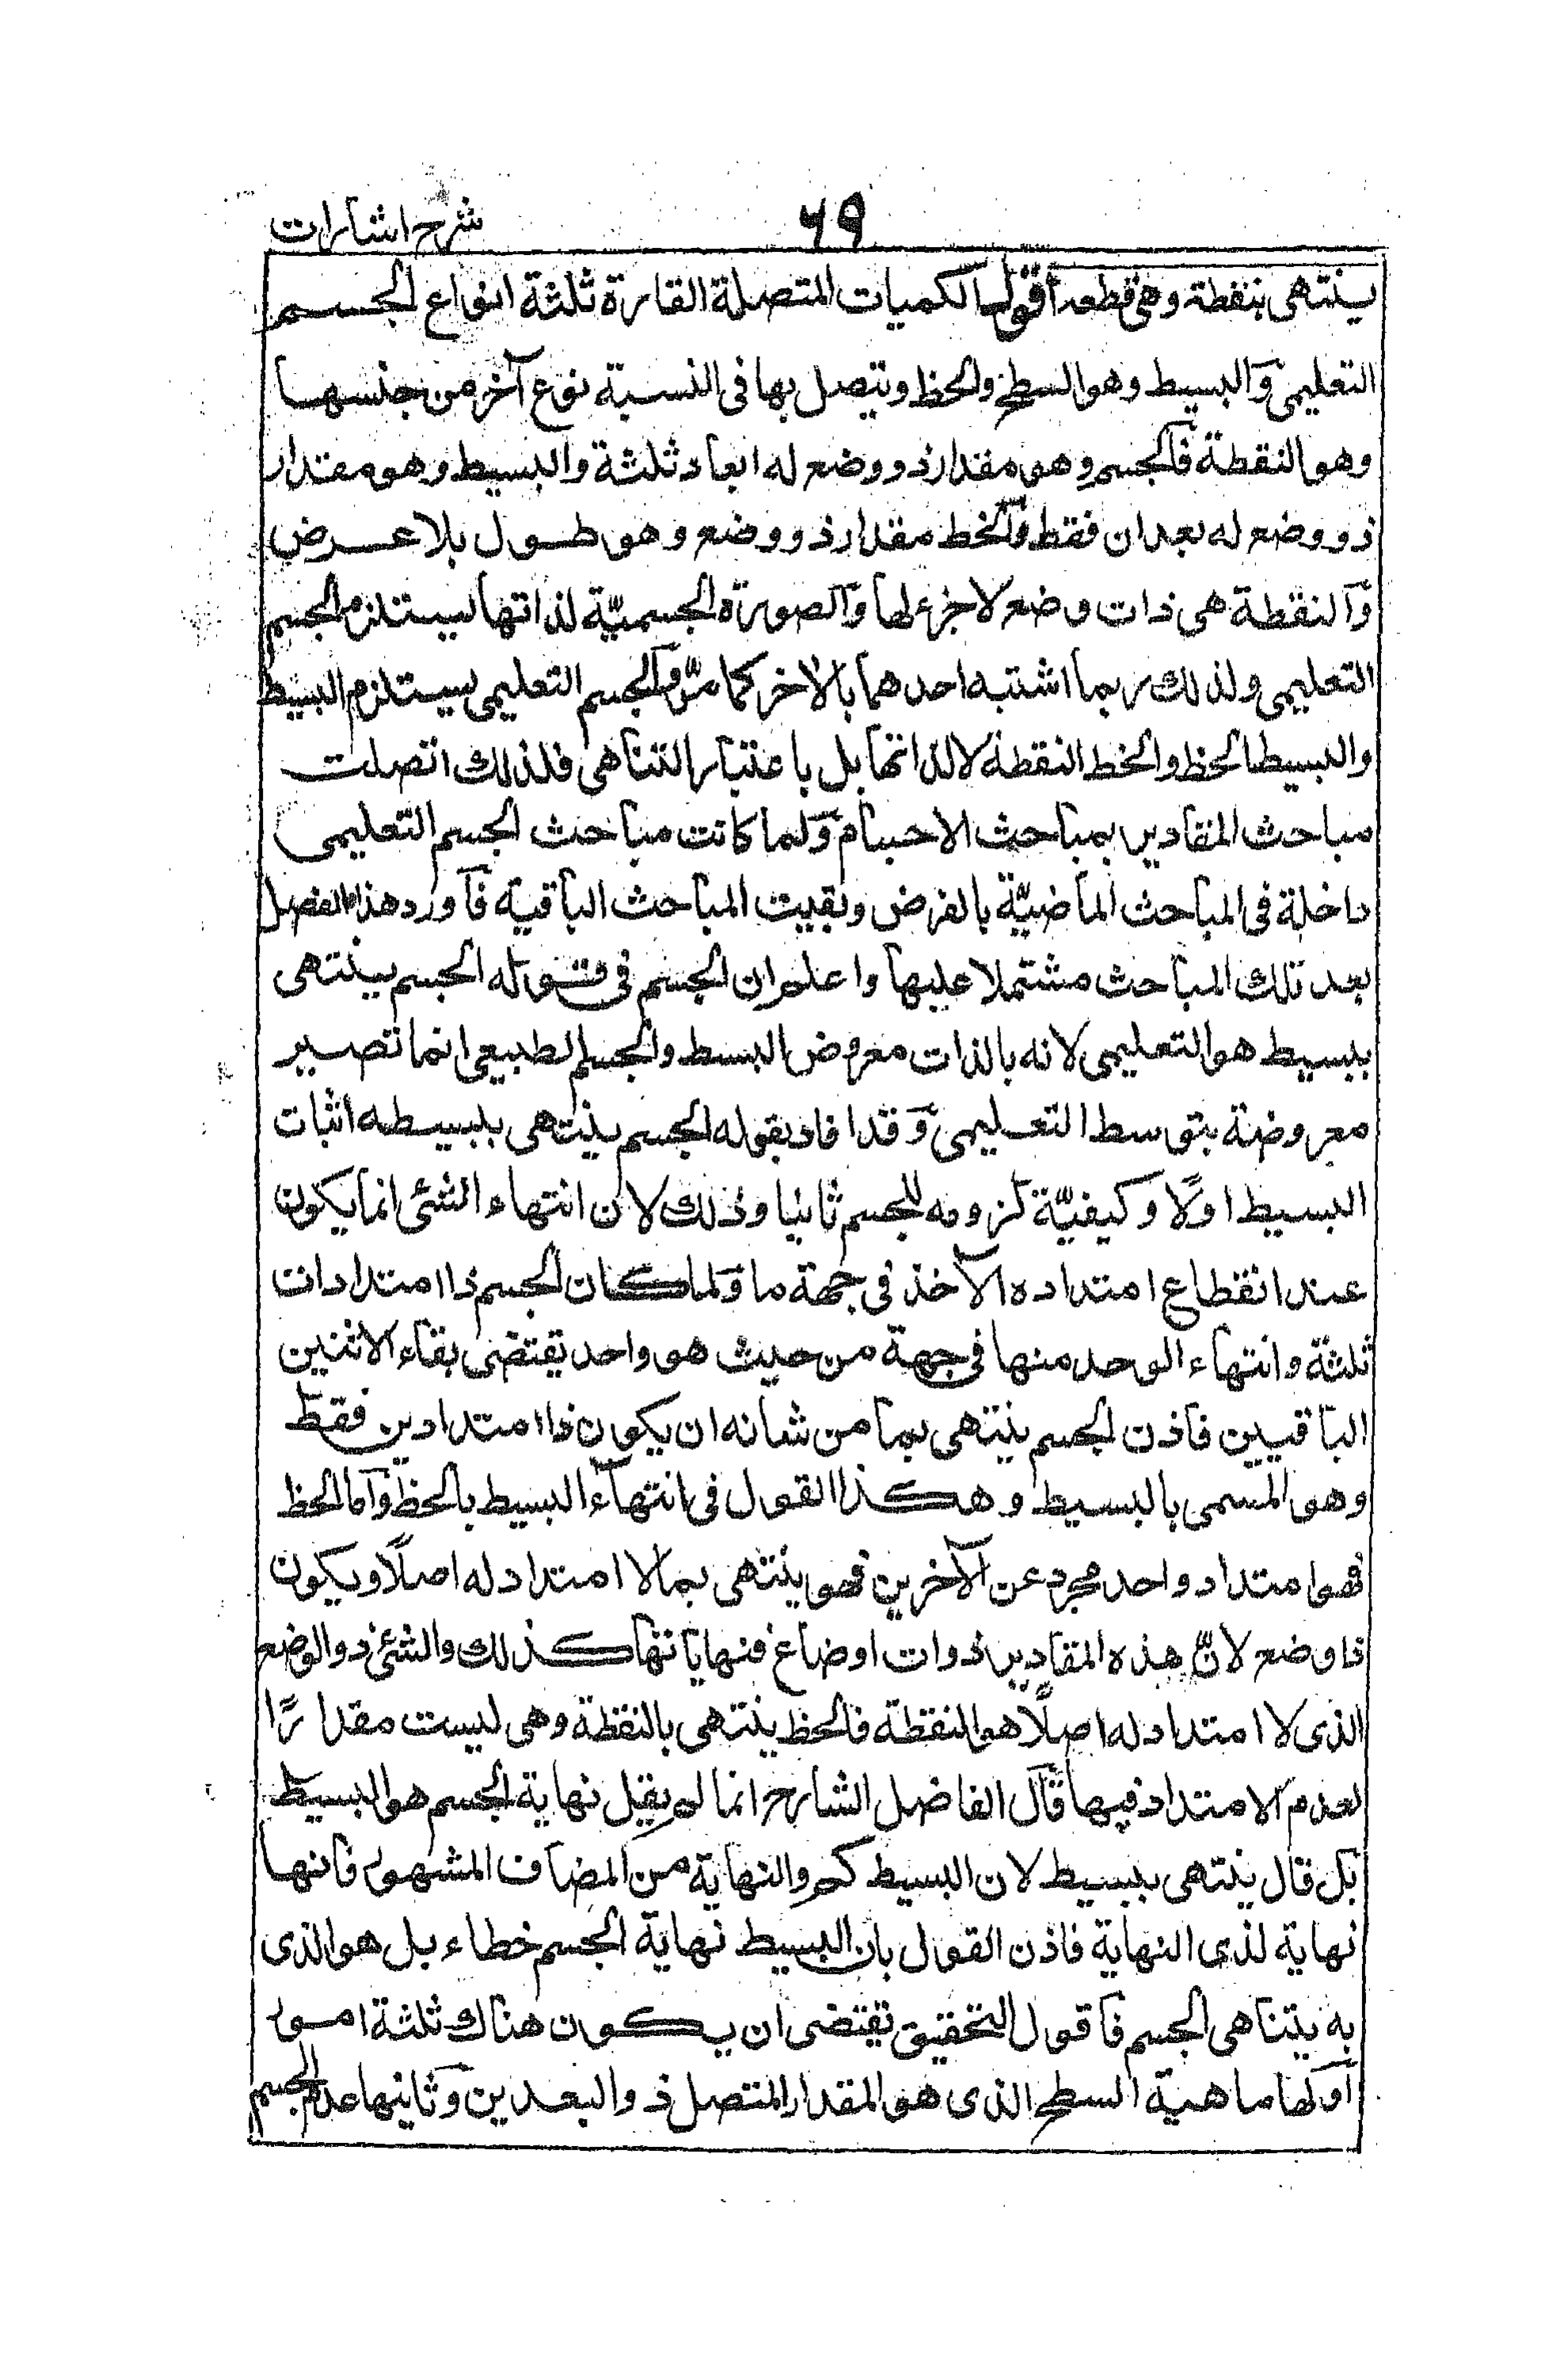 شرح اشارات ٦٩
ينتهى بنقطة وهى قطعه أقول الكميات المتصلة القارة ثلثة انواع الجسم
التعليمى والبسيط وهو السطح والخط ويتصل بها فى النسبة نوع آخر من جنسها
وهو النقطة فالجسم وهو مقدار ذو وضع له ابعاد ثلثة والبسيط وهو مقدار
ذو وضع له بعدان فقط والخط مقدار ذو وضع وهو طول بلا عرض
والنقطة هى ذات وضع لا جزء لها والصورة الجسميّة لذاتها يستلزم الجسم
التعليمى ولذلك ربما اشتبه احدهما بالاخر كما مرّ والجسم التعليمى يستلزم البسيط
والبسيط الخط والخط النقطة لا لذاتها بل باعتبار التناهى فلذلك اتصلت
مباحث المقادير بمباحث الاجسام ولما كانت مباحث الجسم التعليمى
داخلة فى المباحث الماضيّة بالفرض وبقيت المباحث الباقية فاورد هذا الفصل
بعد تلك المباحث مشتملا عليها واعلم ان الجسم فى قوله الجسم ينتهى
ببسيط هو التعليمى لانه بالذات معروض البسط والجسم الطبيعى انما تصير
معروضة بتوسط التعليمى وقد افاد بقوله الجسم ينتهى ببسيطه اثبات
البسيط اولًا وكيفيّة لزومه للجسم ثانيا وذلك لان انتهاء الشئ انما يكون
عند انقطاع امتداده الآخذ فى جهة ما ولما كان الجسم ذا امتدادات
ثلثة وانتهاء الوحد منها فى جهة من حيث هو واحد يقتضى بقاء الاثنين
الباقيين فاذن الجسم ينتهى بما من شانه ان يكون ذا امتدادين فقط
وهو المسمى بالبسيط وهكذا القول فى انتهاء البسيط بالخط واما الخط
فهو امتداد واحد مجرد عن الآخرين فهو ينتهى بما لا امتداد له اصلًا ويكون
ذا وضع لانّ هذه المقادير ذوات اوضاع فنهاياتها كذلك والشئ ذو الوضع
الذى لا امتداد له اصلًا هو النقطة فالخط ينتهى بالنقطة وهى ليست مقدارًا
لعدم الامتداد فيها قال الفاضل الشارح انما لم يقل نهاية الجسم هو البسيط
بل قال ينتهى ببسيط لان البسيط كم والنهاية من المضاف المشهور فانها
نهاية لذى النهاية فاذن القول بان البسيط نهاية الجسم خطاء بل هو الذى
به يتناهى الجسم فاقول التحقيق تقتضى ان يكون هناك ثلثة امور
اولها ماهية السطح الذى هو المقدار المتصل ذو البعدين وثانيها عدم الجسم